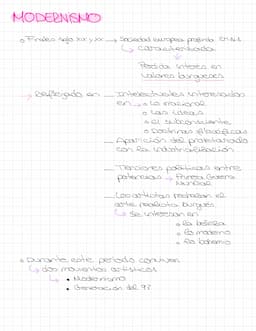 MODERNISMO
Finales siglo XIX y XX → Sociedad europea profunda crisis
↳ caracterizada
Perdida interes en
valores burgueses
→ Reflejado en — Intelectuales interesados
en → lo irracional
lo ideal
el subconsciente
Doctrinas filosóficas
— Aparición del proletariado
con la industrialización
— Tensiones políticas entre
potencias → Primera Guerra
Mundial
— Los artistas rechazan el
arte realista burgués
↳ se interesan en
la belleza
lo moderno
la bohemia
Durante este periodo conviven
↳ dos movimientos artísticos
↳ • Modernismo
• Generación del 98